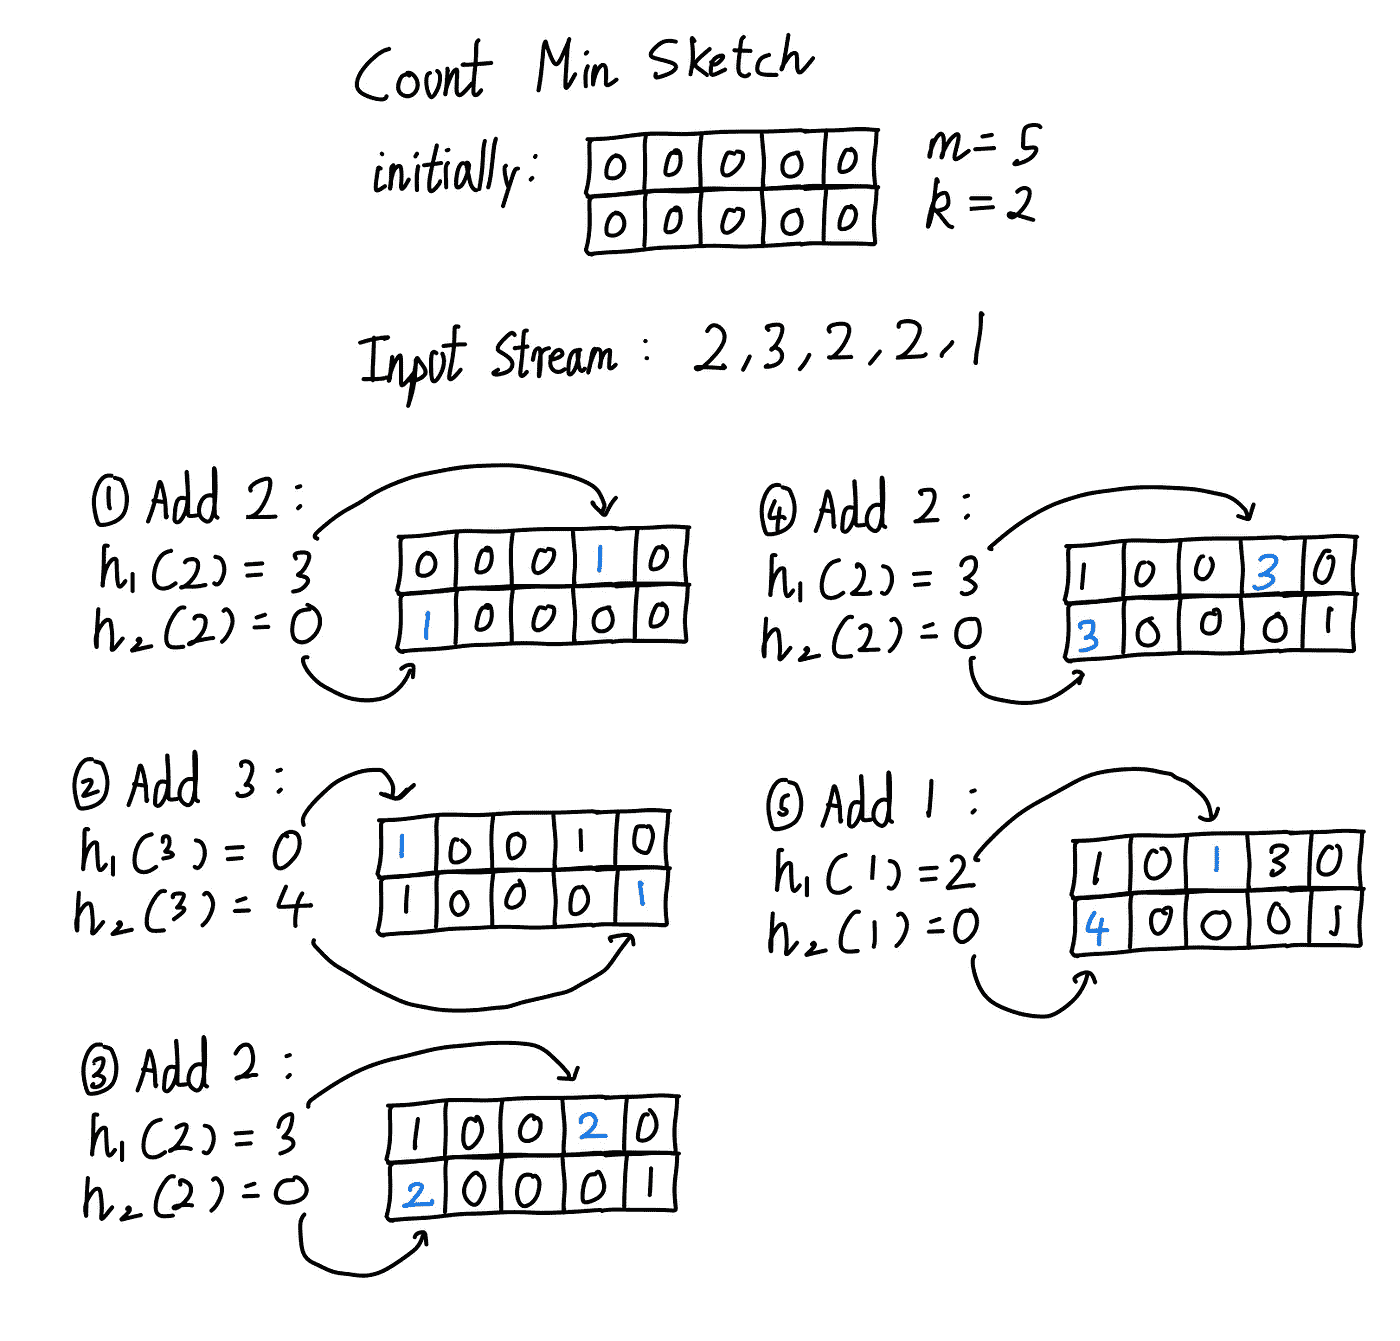 Count Min Sketch
initially:
0 0 0 0 0
0 0 0 0 0
m = 5
k = 2
Input Stream : 2,3,2,2,1
① Add 2 :
h₁(2) = 3
h₂(2) = 0
0 0 0 1 0
1 0 0 0 0
② Add 3 :
h₁(3) = 0
h₂(3) = 4
1 0 0 1 0
1 0 0 0 1
③ Add 2 :
h₁(2) = 3
h₂(2) = 0
1 0 0 2 0
2 0 0 0 1
④ Add 2 :
h₁(2) = 3
h₂(2) = 0
1 0 0 3 0
3 0 0 0 1
⑤ Add 1 :
h₁(1) = 2
h₂(1) = 0
1 0 1 3 0
4 0 0 0 1